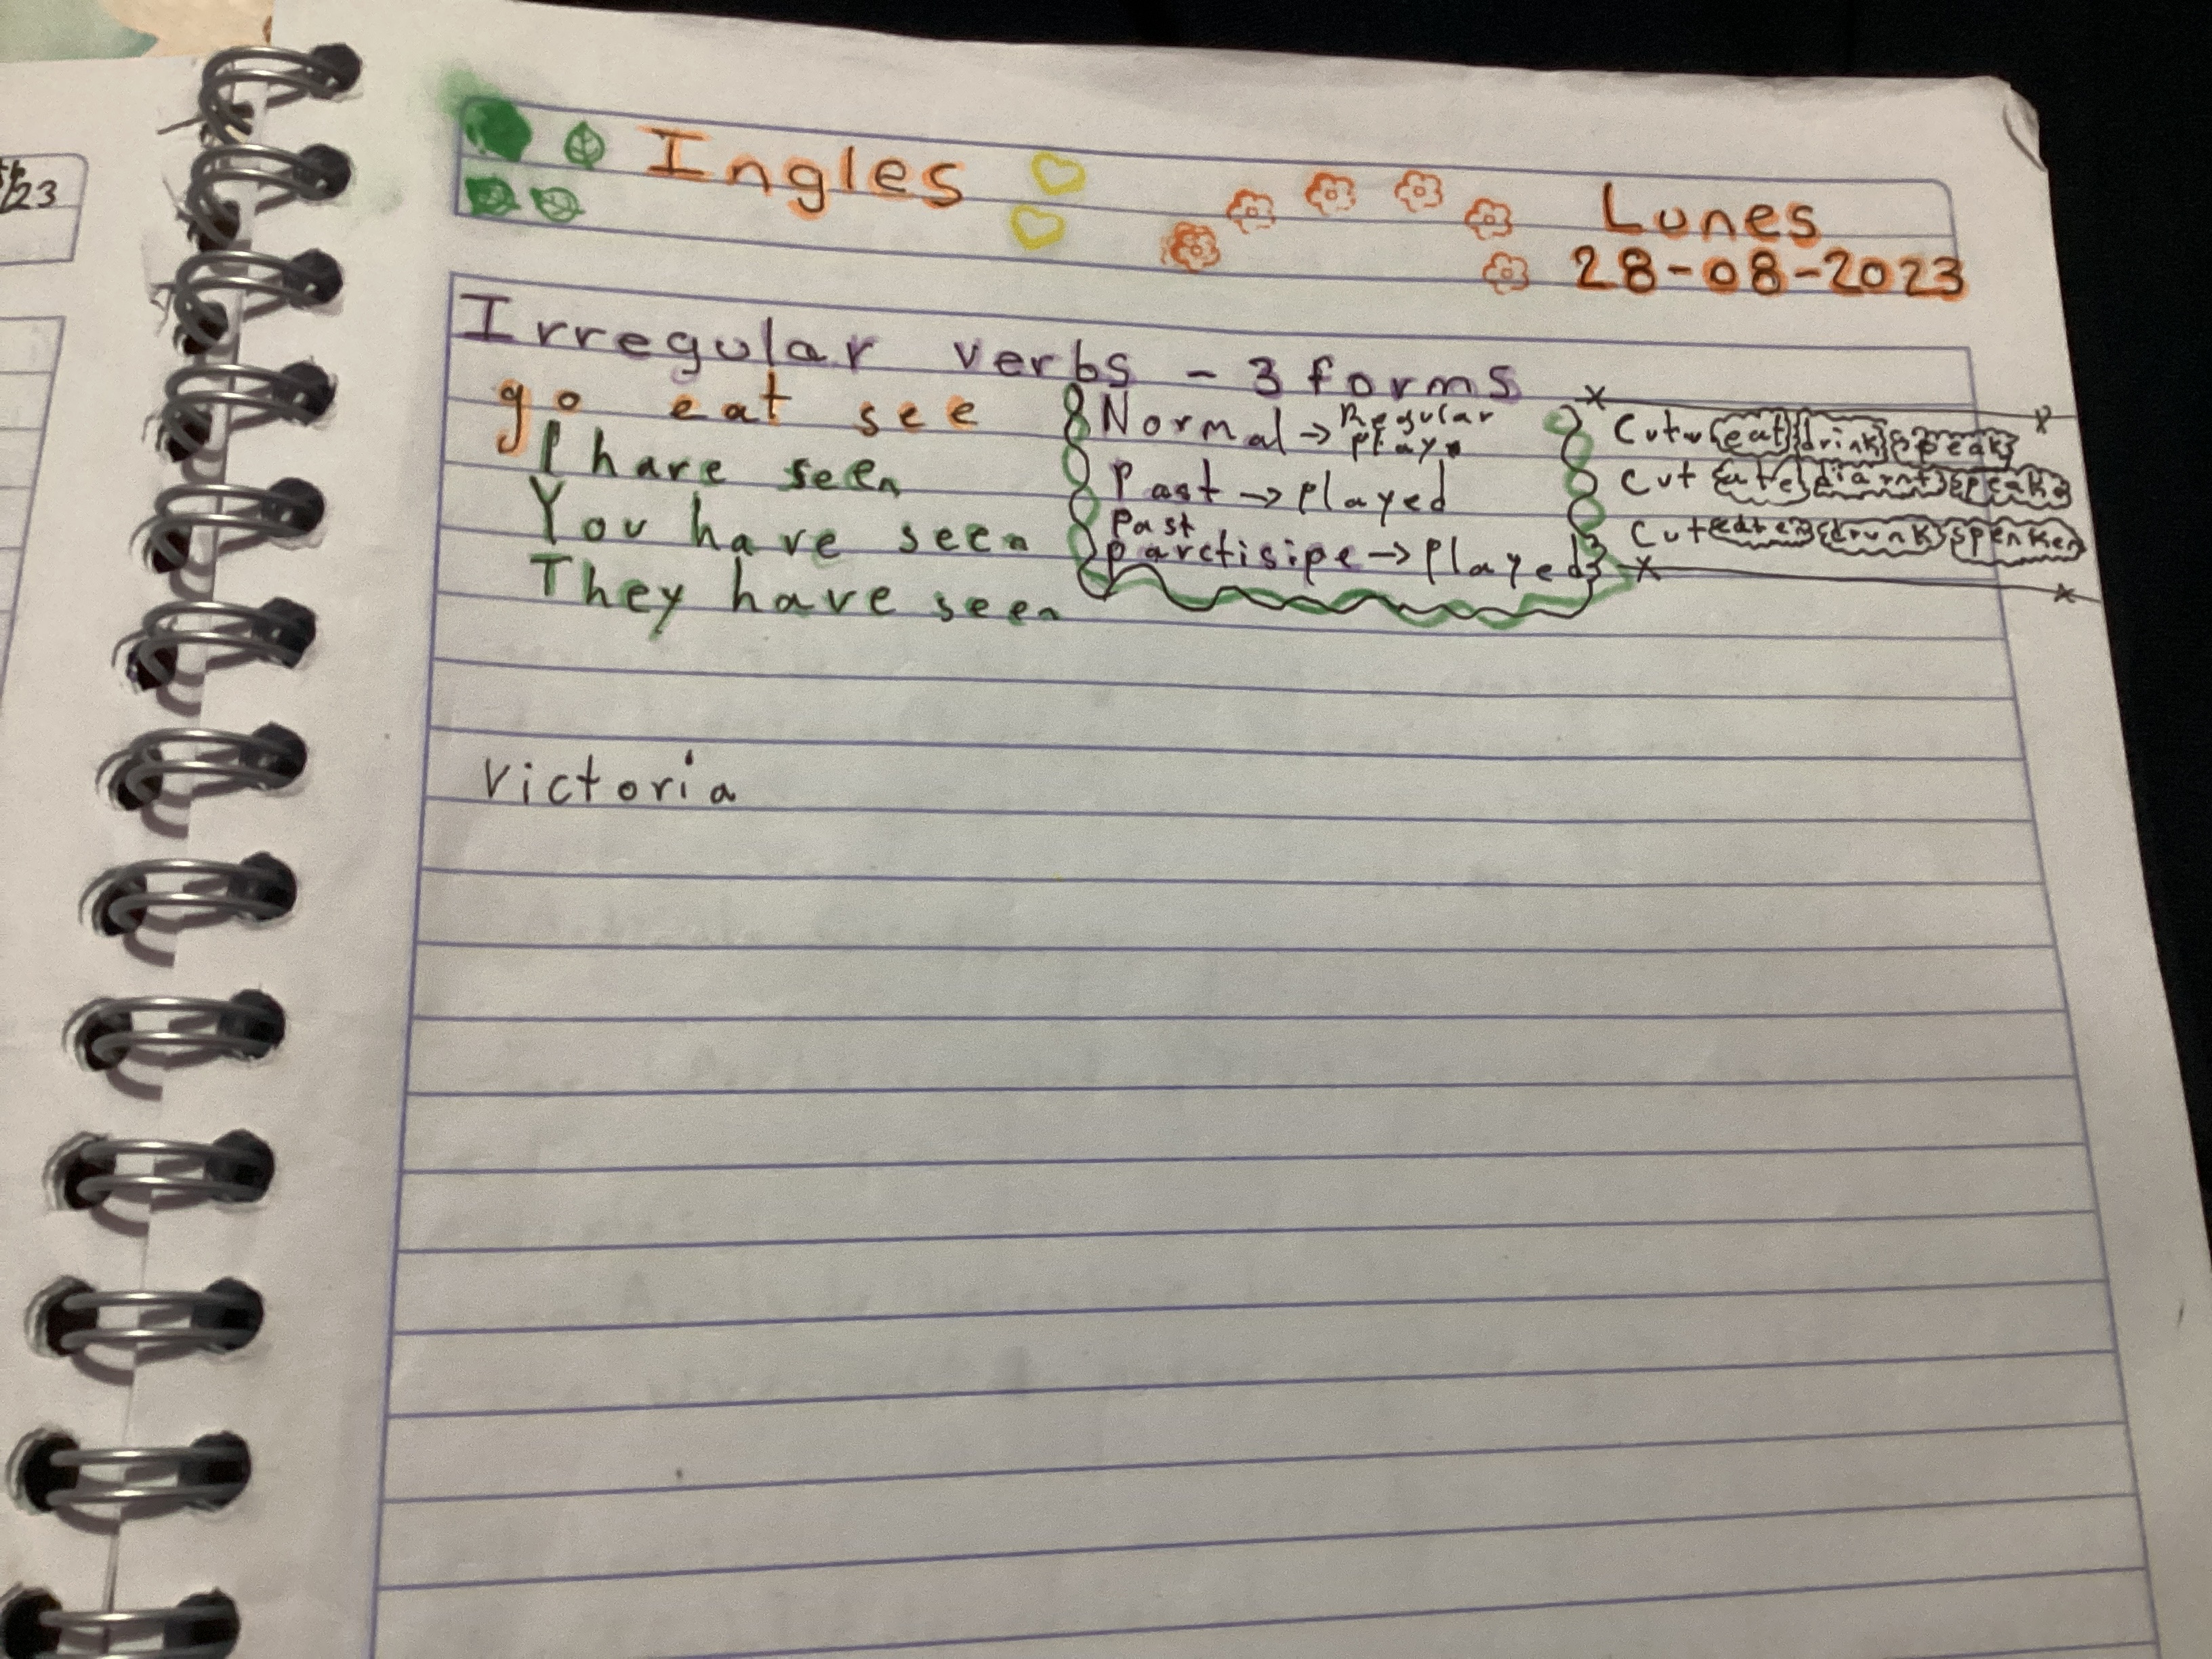 Ingles
Lunes
28-08-2023
Irregular verbs - 3 forms
go eat see
I have seen
You have seen
They have seen
Normal → Regular
play
Past → played
Past
parctisipe → played
cut eat drink speak
cut ate
cut eaten drunk
Victoria
/23